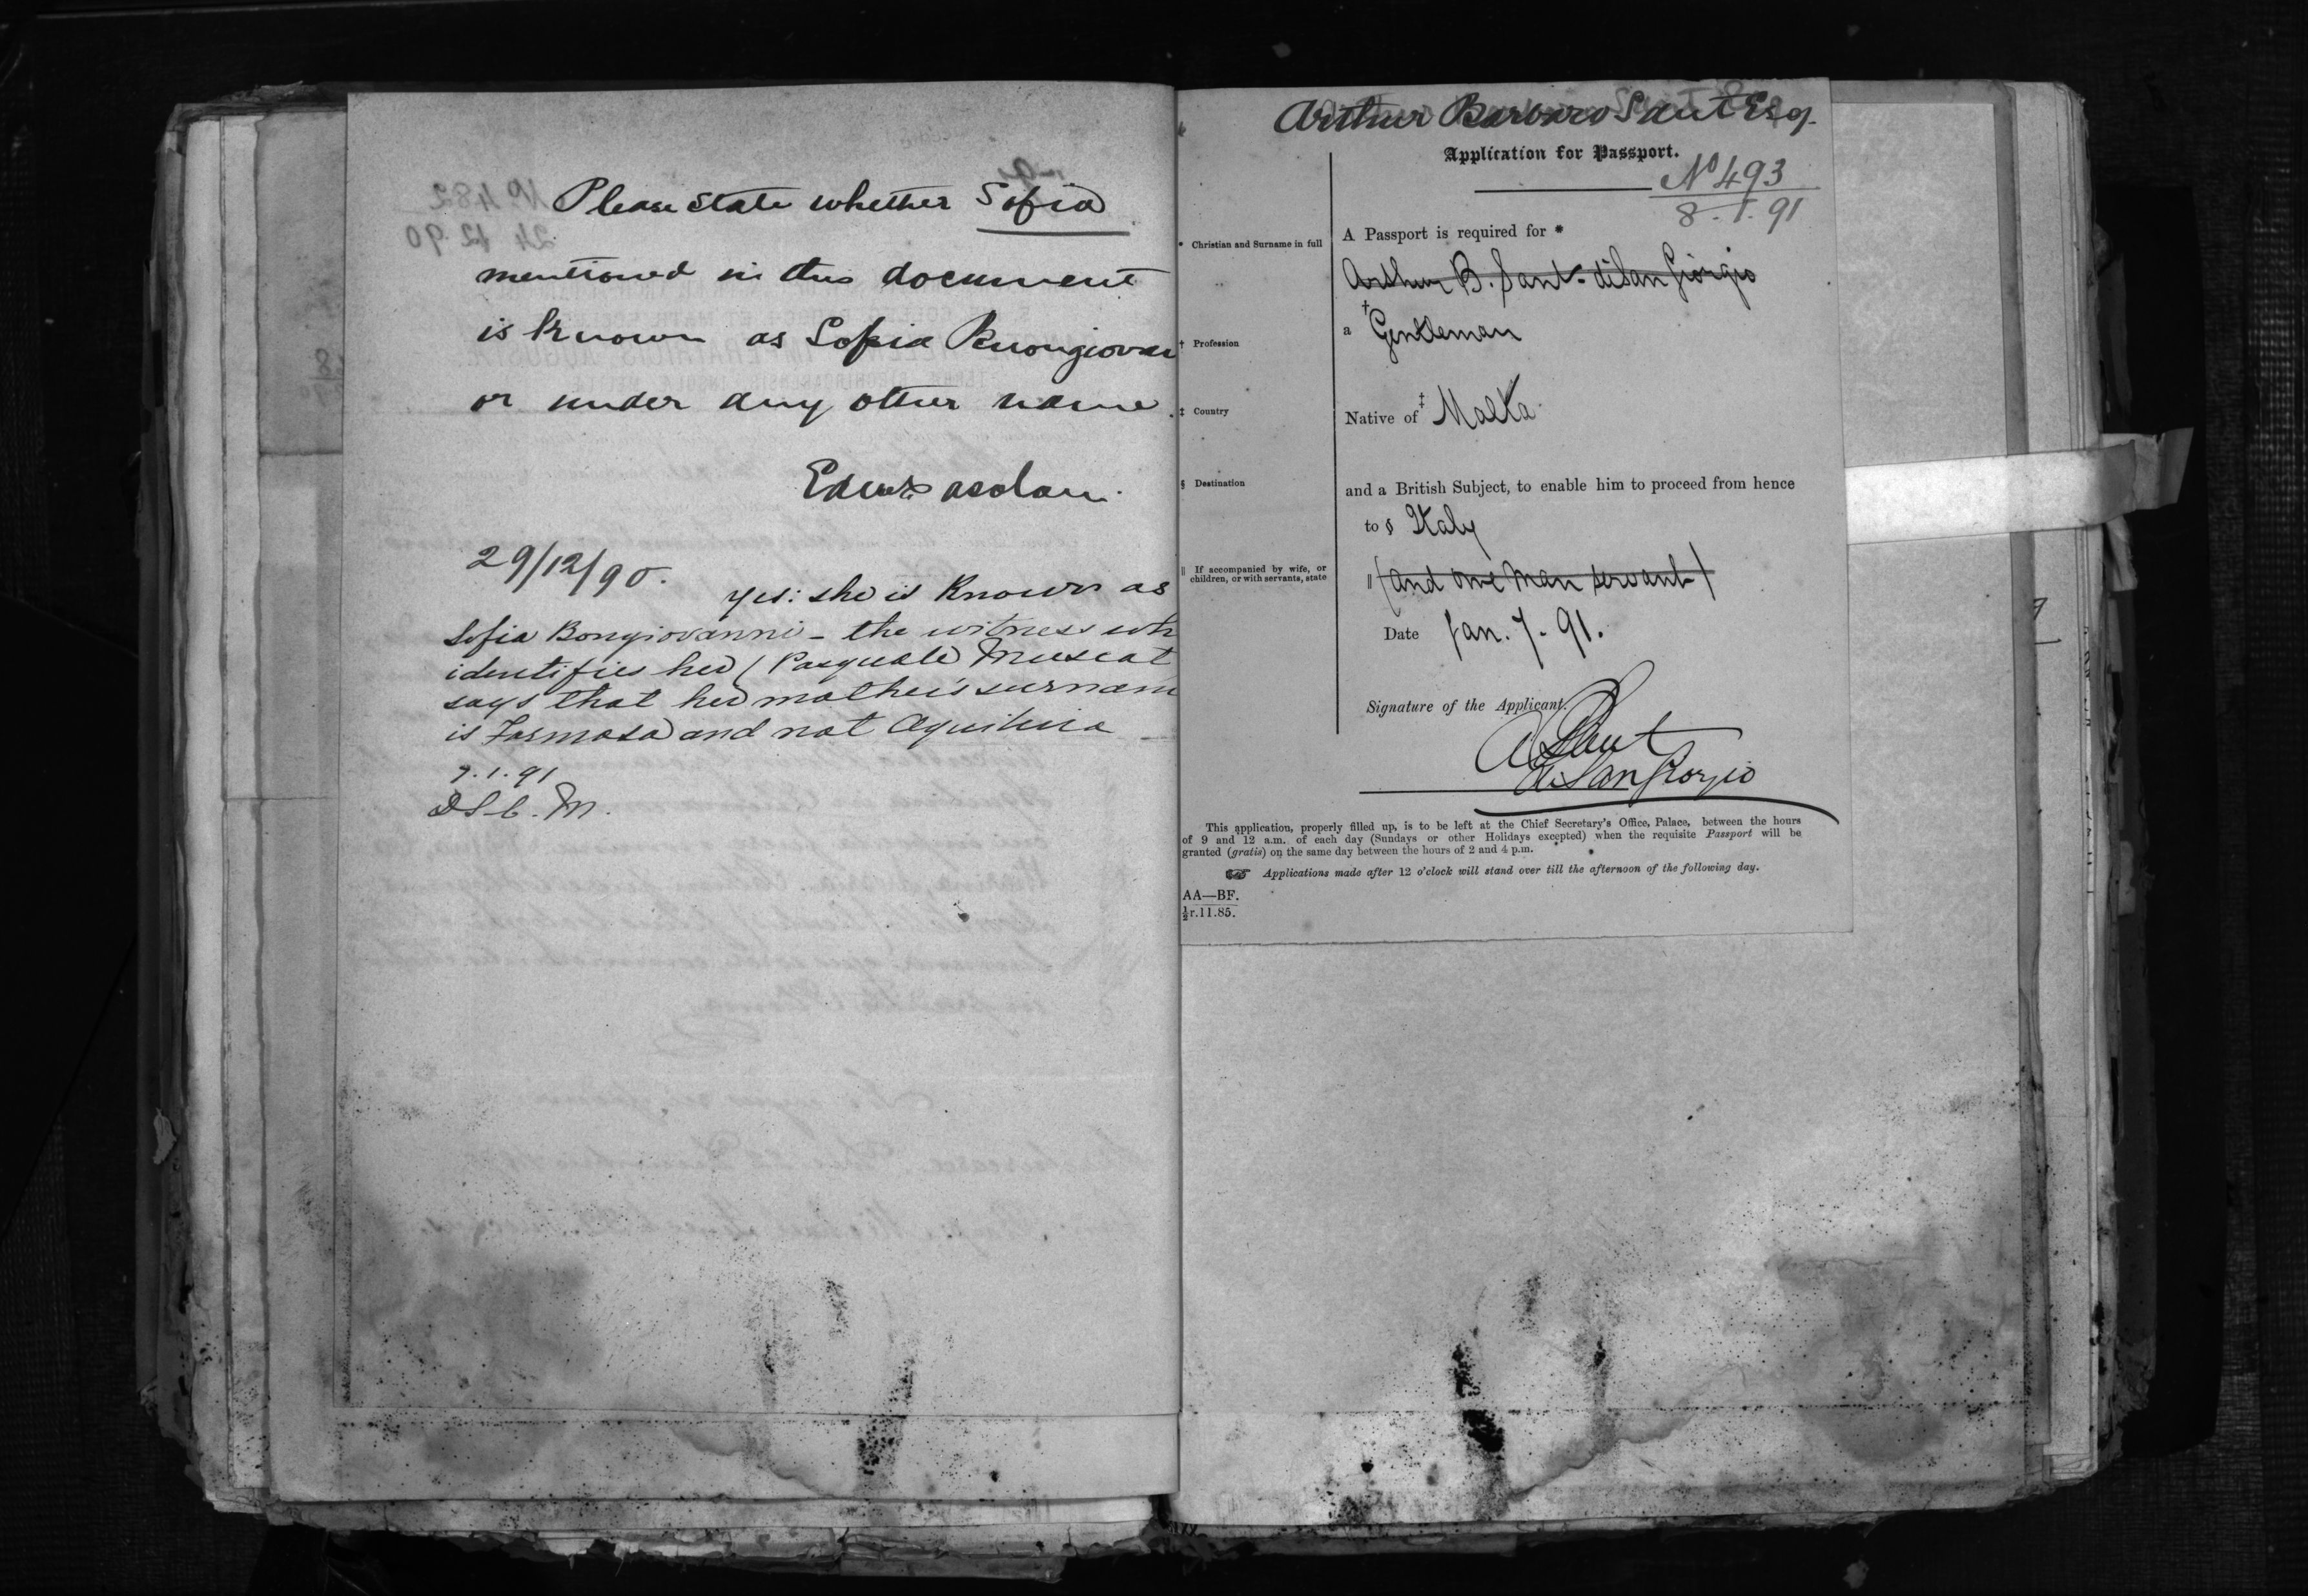 Please state whether Sofia
mentioned in this document
is known as Sofia
or under any other name.
29/12/90.
Yes: she is known as
Sofia Bongiovanni - the witness wh
identifies her (Pasquale Muscat
says that her mother's surnam
is Farmosa and not Aquilina
7.1.91
Arthur Barbaro Sant Esq.
Application for Passport.
Nº 493
8.1.91
* Christian and Surname in full
A Passport is required for *
Arthur B. Sant di San Giorgio
† Profession
a † Gentleman
‡ Country
Native of ‡ Malta
§ Destination
and a British Subject, to enable him to proceed from hence
to § Italy
|| If accompanied by wife, or
children, or with servants, state
|| (and one man servant)
Date Jan. 7. 91.
Signature of the Applicant.
A B Sant
di San Giorgio
This application, properly filled up, is to be left at the Chief Secretary's Office, Palace, between the hours
of 9 and 12 a.m. of each day (Sundays or other Holidays excepted) when the requisite Passport will be
granted (gratis) on the same day between the hours of 2 and 4 p.m.
☞ Applications made after 12 o'clock will stand over till the afternoon of the following day.
AA—BF.
½r.11.85.